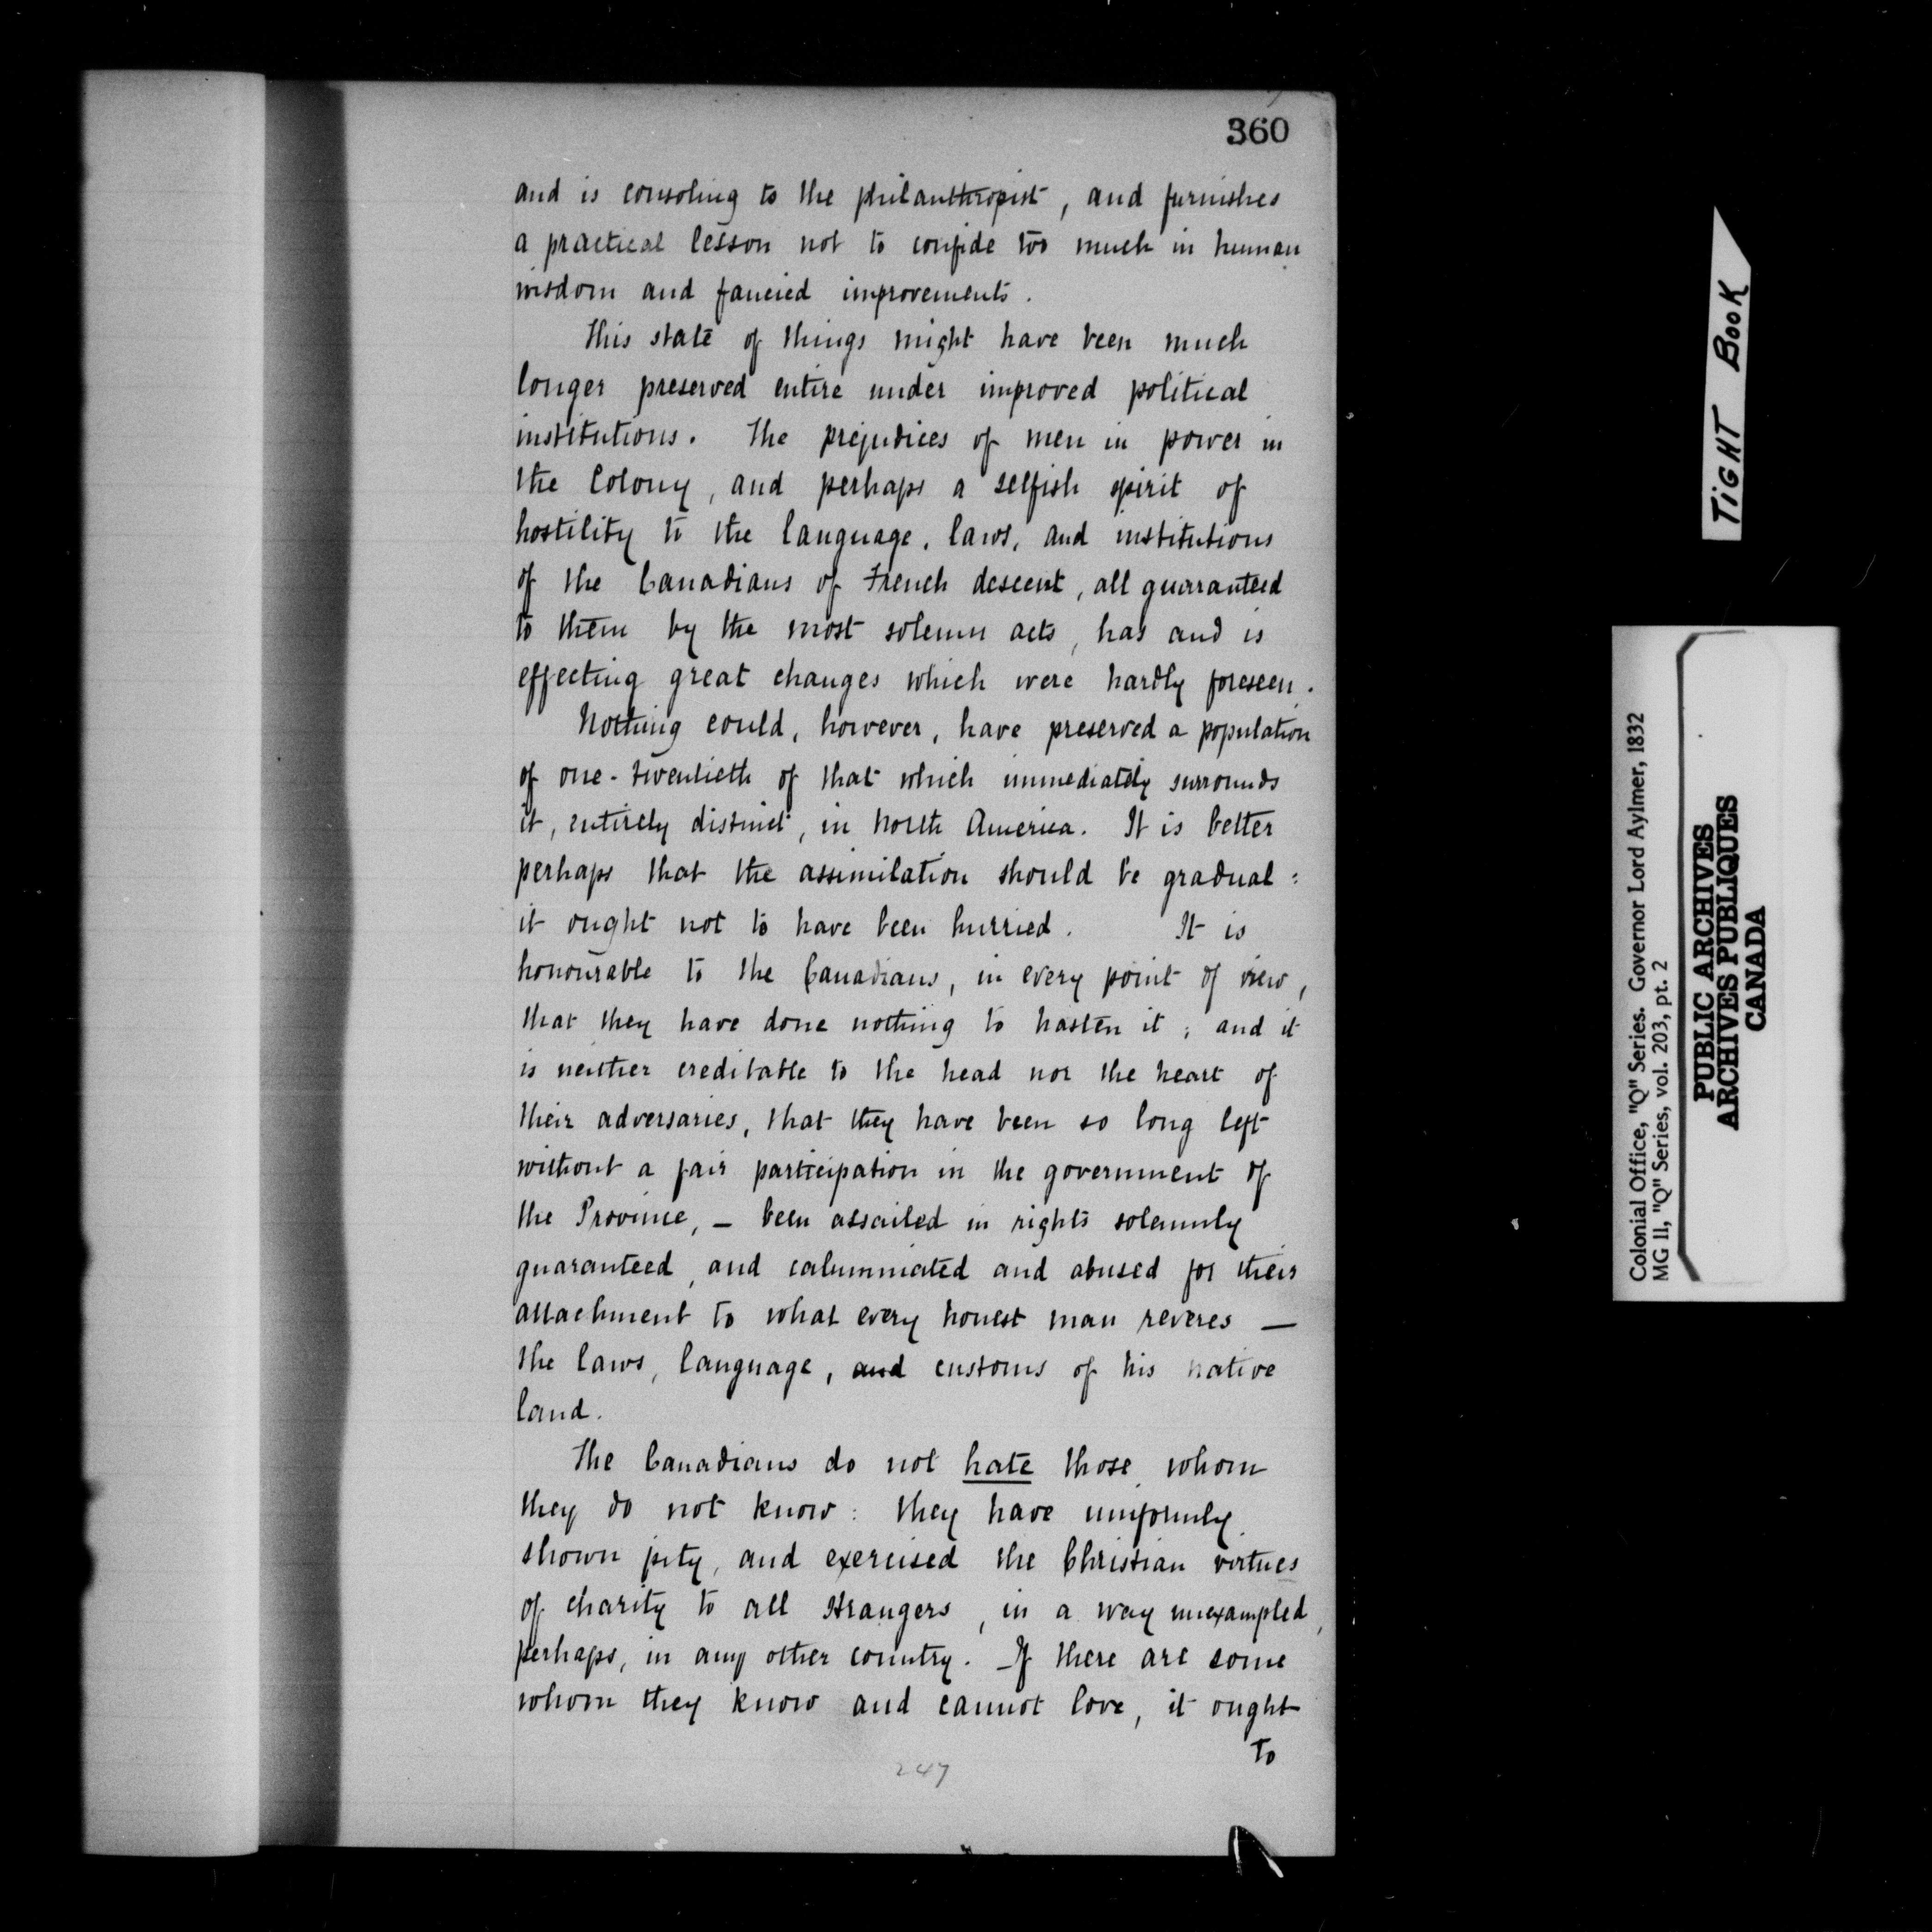 360
and is consoling to the philanthropist, and furnishes
a practical lesson not to confide too much in human
wisdom and fancied improvements.
This state of things might have been much
longer preserved entire under improved political
institutions. The prejudices of men in power in
the Colony, and perhaps a selfish spirit of
hostility to the language, laws, and institutions
of the Canadians of French descent, all guaranteed
to them by the most solemn acts, has and is
effecting great changes which were hardly foreseen.
Nothing could, however, have preserved a population
of one-twentieth of that which immediately surrounds
it, entirely distinct, in North America. It is better
perhaps that the assimilation should be gradual:
it ought not to have been hurried. It is
honourable to the Canadians, in every point of view,
that they have done nothing to hasten it; and it
is neither creditable to the head nor the heart of
their adversaries, that they have been so long left
without a fair participation in the government of
the Province, — been assailed in rights solemnly
guaranteed, and calumniated and abused for their
attachment to what every honest man reveres —
the laws, language, and customs of his native
land.
The Canadians do not hate those whom
they do not know: they have uniformly
shown pity, and exercised the Christian virtues
of charity to all strangers, in a way unexampled,
perhaps, in any other country. If there are some
whom they know and cannot love, it ought
to
247
TIGHT BOOK
Colonial Office, "Q" Series. Governor Lord Aylmer, 1832
MG 11, "Q" Series, vol. 203, pt. 2
PUBLIC ARCHIVES
ARCHIVES PUBLIQUES
CANADA